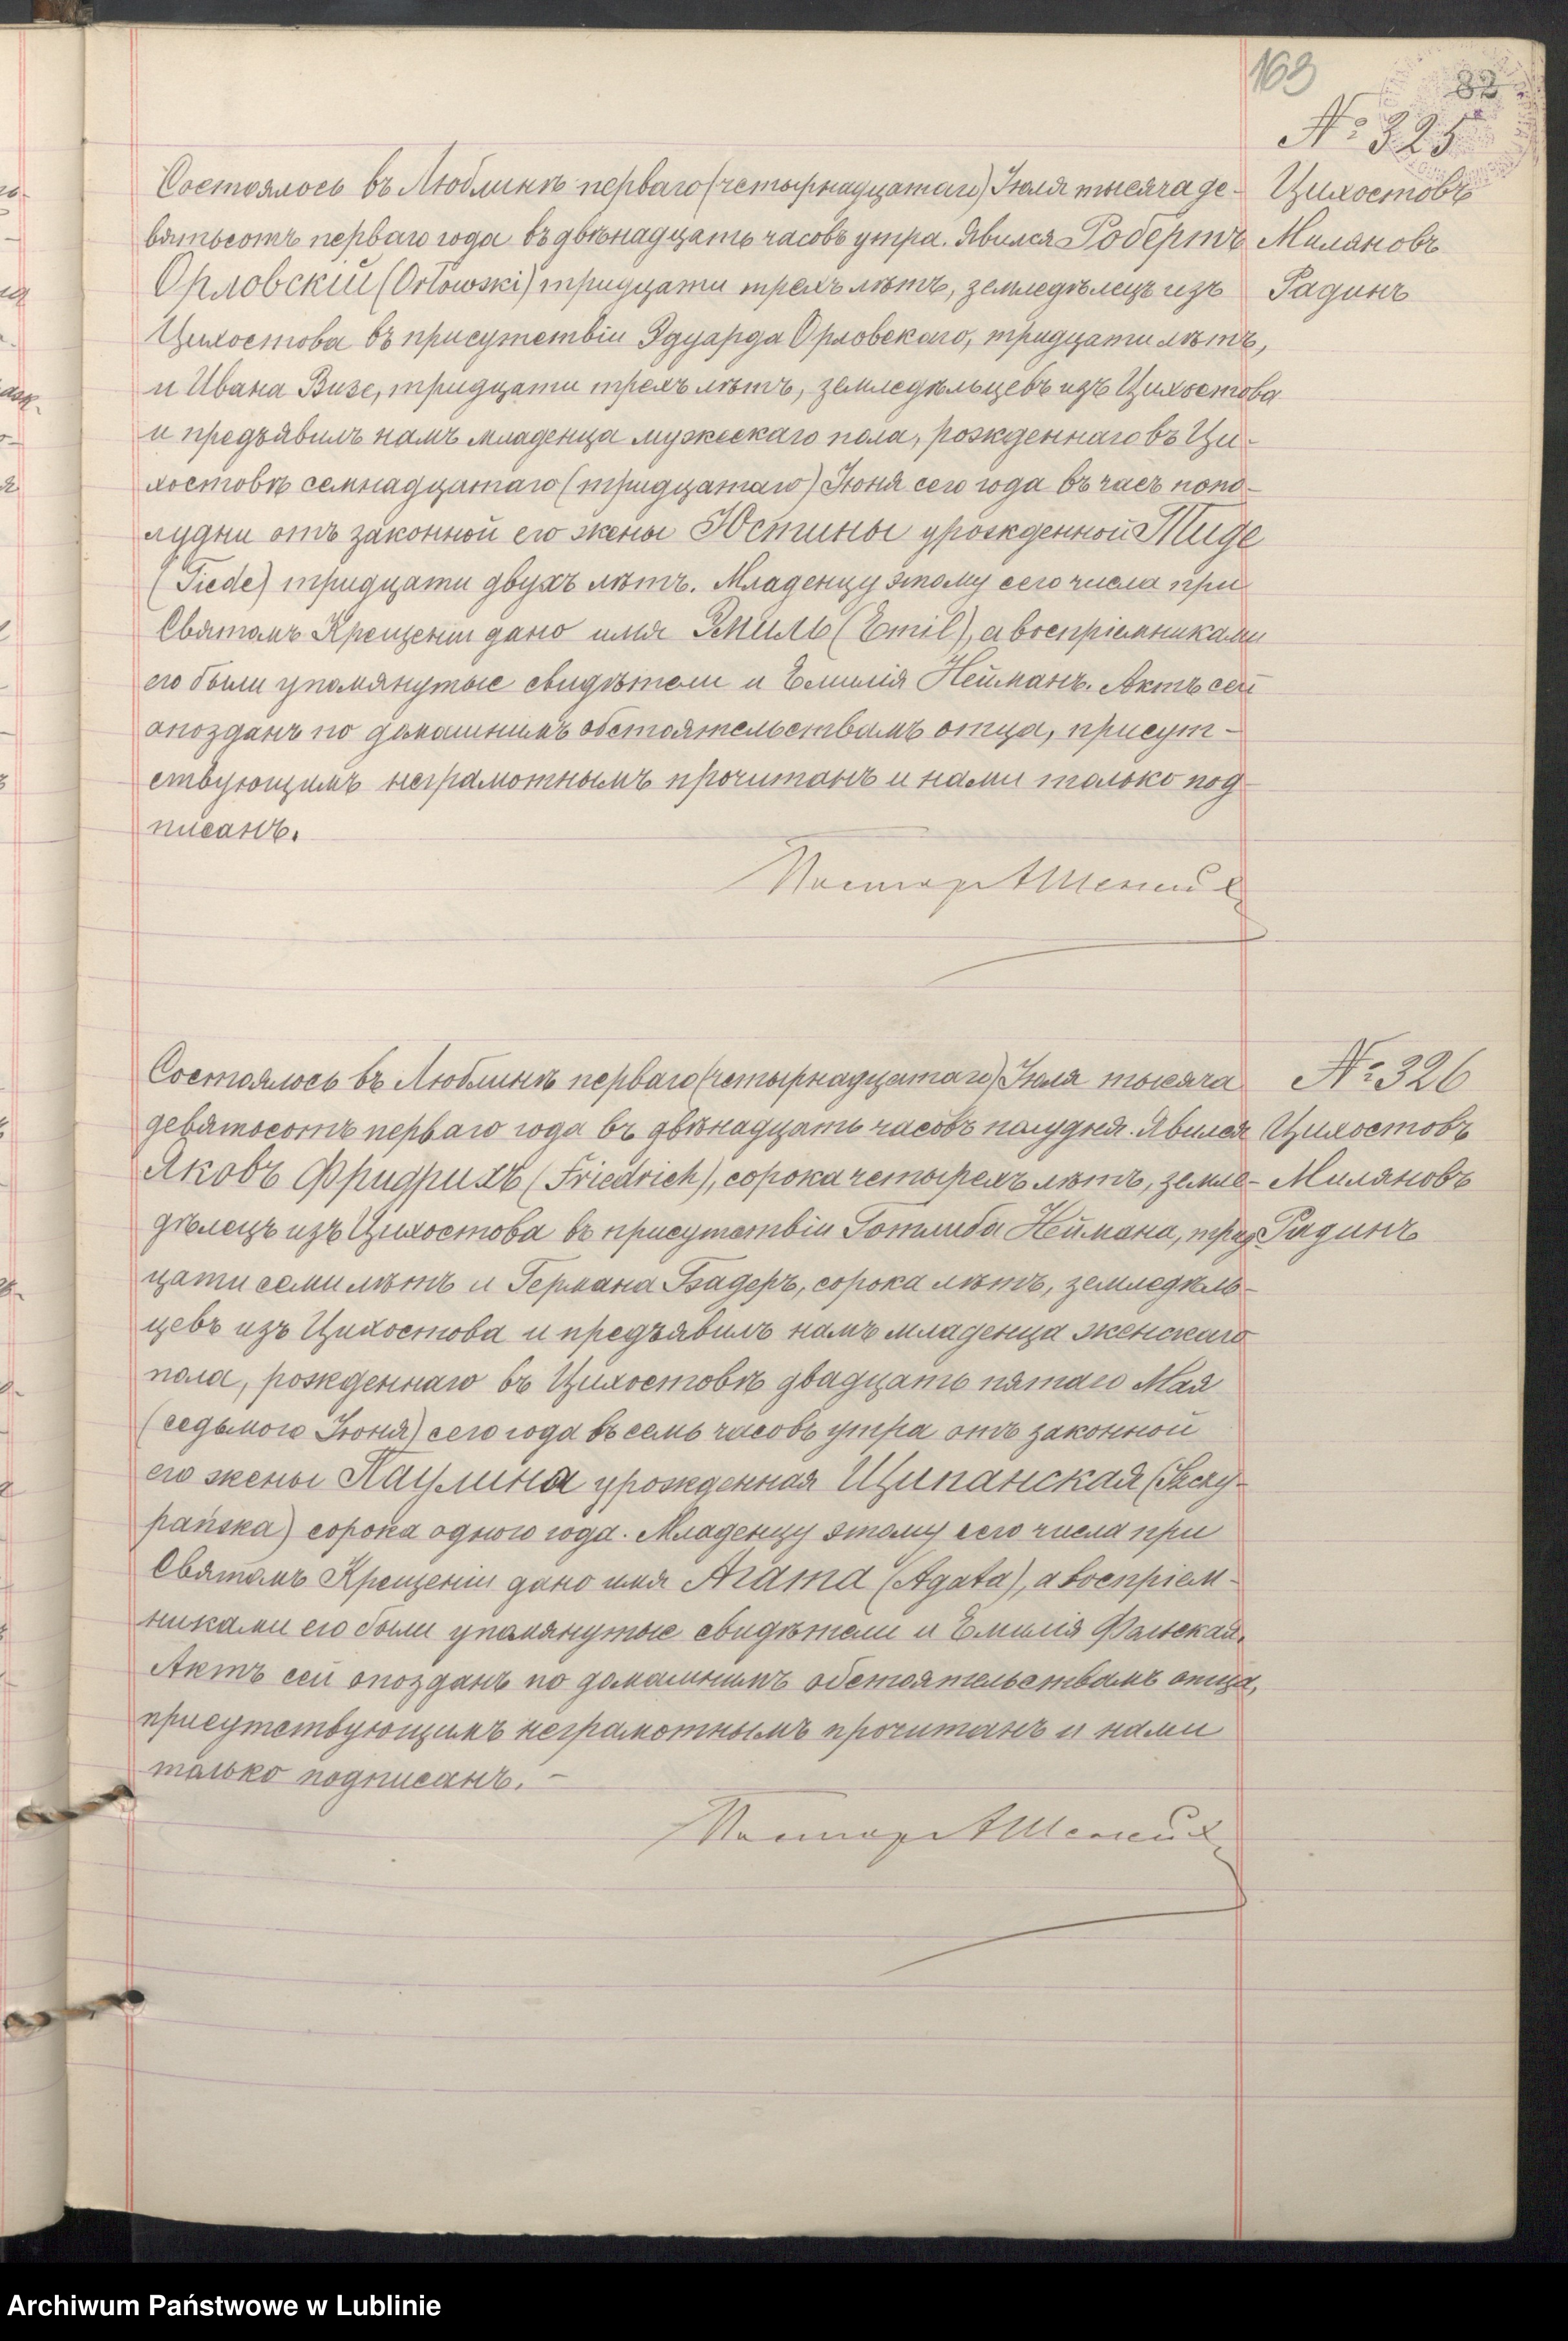 169
82
№ 325
Цихостовъ
Миляновъ
Радинъ
Состоялось въ Люблинѣ перваго (четырнадцатаго) Іюля тысяча де-
вятьсотъ перваго года въ двѣнадцать часовъ утра. Явился Робертъ
Орловскій (Orłowski) тридцати трехъ лѣтъ, земледѣлецъ изъ
Цихостова въ присутствіи Эдуарда Орловскаго, тридцати лѣтъ,
и Ивана Визе, тридцати трехъ лѣтъ, земледѣльцевъ изъ Цихостова
и предъявилъ намъ младенца мужескаго пола, рожденнаго въ Ци-
хостовѣ семнадцатаго (тридцатаго) Іюня сего года въ часъ попо-
лудни отъ законной его жены Юстины урожденной Тиде
(Tiede) тридцати двухъ лѣтъ. Младенцу этому сего числа при
Святомъ Крещеніи дано имя Эмиль (Emil), а воспріемниками
его были упомянутые свидѣтели и Емилія Нейманъ. Актъ сей
опозданъ по домашнимъ обстоятельствамъ отца, присут-
ствующимъ неграмотнымъ прочитанъ и нами только под-
писанъ.
Пасторъ
№ 326
Цихостовъ
Миляновъ
Радинъ
Состоялось въ Люблинѣ перваго (четырнадцатаго) Іюля тысяча
девятьсотъ перваго года въ двѣнадцать часовъ полудня. Явился
Яковъ Фридрихъ (Friedrich), сорока четырехъ лѣтъ, земле-
дѣлецъ изъ Цихостова въ присутствіи Готлиба Неймана, трид-
цати семи лѣтъ и Германа Бадеръ, сорока лѣтъ, земледѣль-
цевъ изъ Цихостова и предъявилъ намъ младенца женскаго
пола, рожденнаго въ Цихостовѣ двадцать пятаго Мая
(седьмого Іюня) сего года въ семь часовъ утра отъ законной
его жены Паулина урожденная Щипанская (Szczy-
pańska) сорока одного года. Младенцу этому сего числа при
Святомъ Крещеніи дано имя Агата (Agata), а воспріем-
никами его были упомянутые свидѣтели и Емилія
Актъ сей опозданъ по домашнимъ обстоятельствамъ отца,
присутствующимъ неграмотнымъ прочитанъ и нами
только подписанъ. –
Пасторъ
Archiwum Państwowe w Lublinie